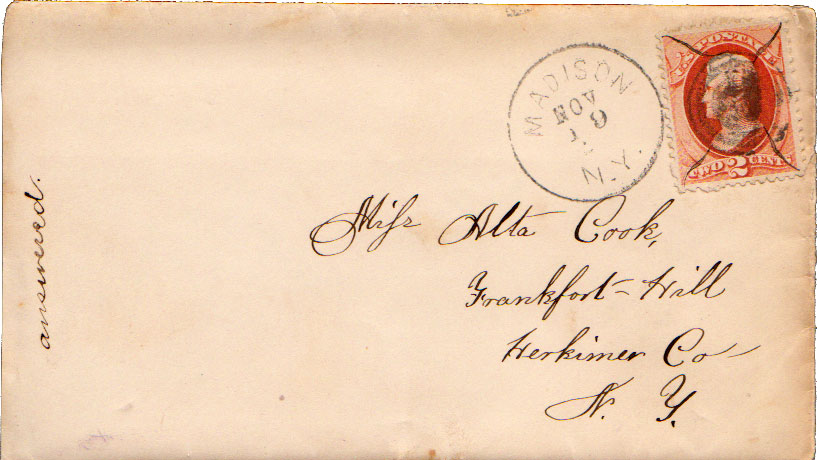 MADISON
NOV
N.Y.
U.S. POSTAGE
TWO 2 CENTS
Miss Alta Cook,
Frankfort-Hill
Herkimer Co
N. Y.
answered.